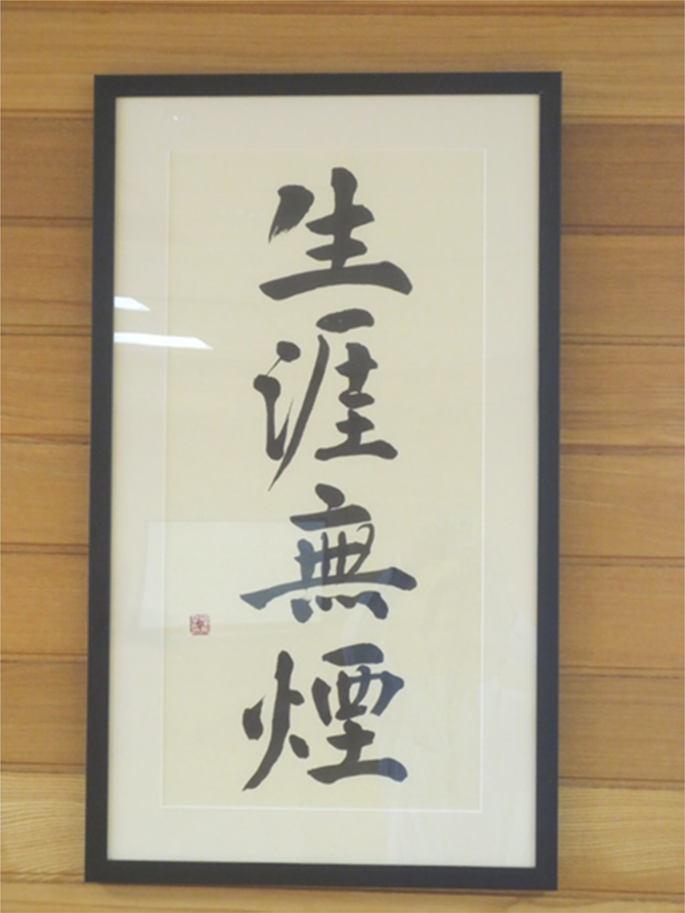 生涯無煙